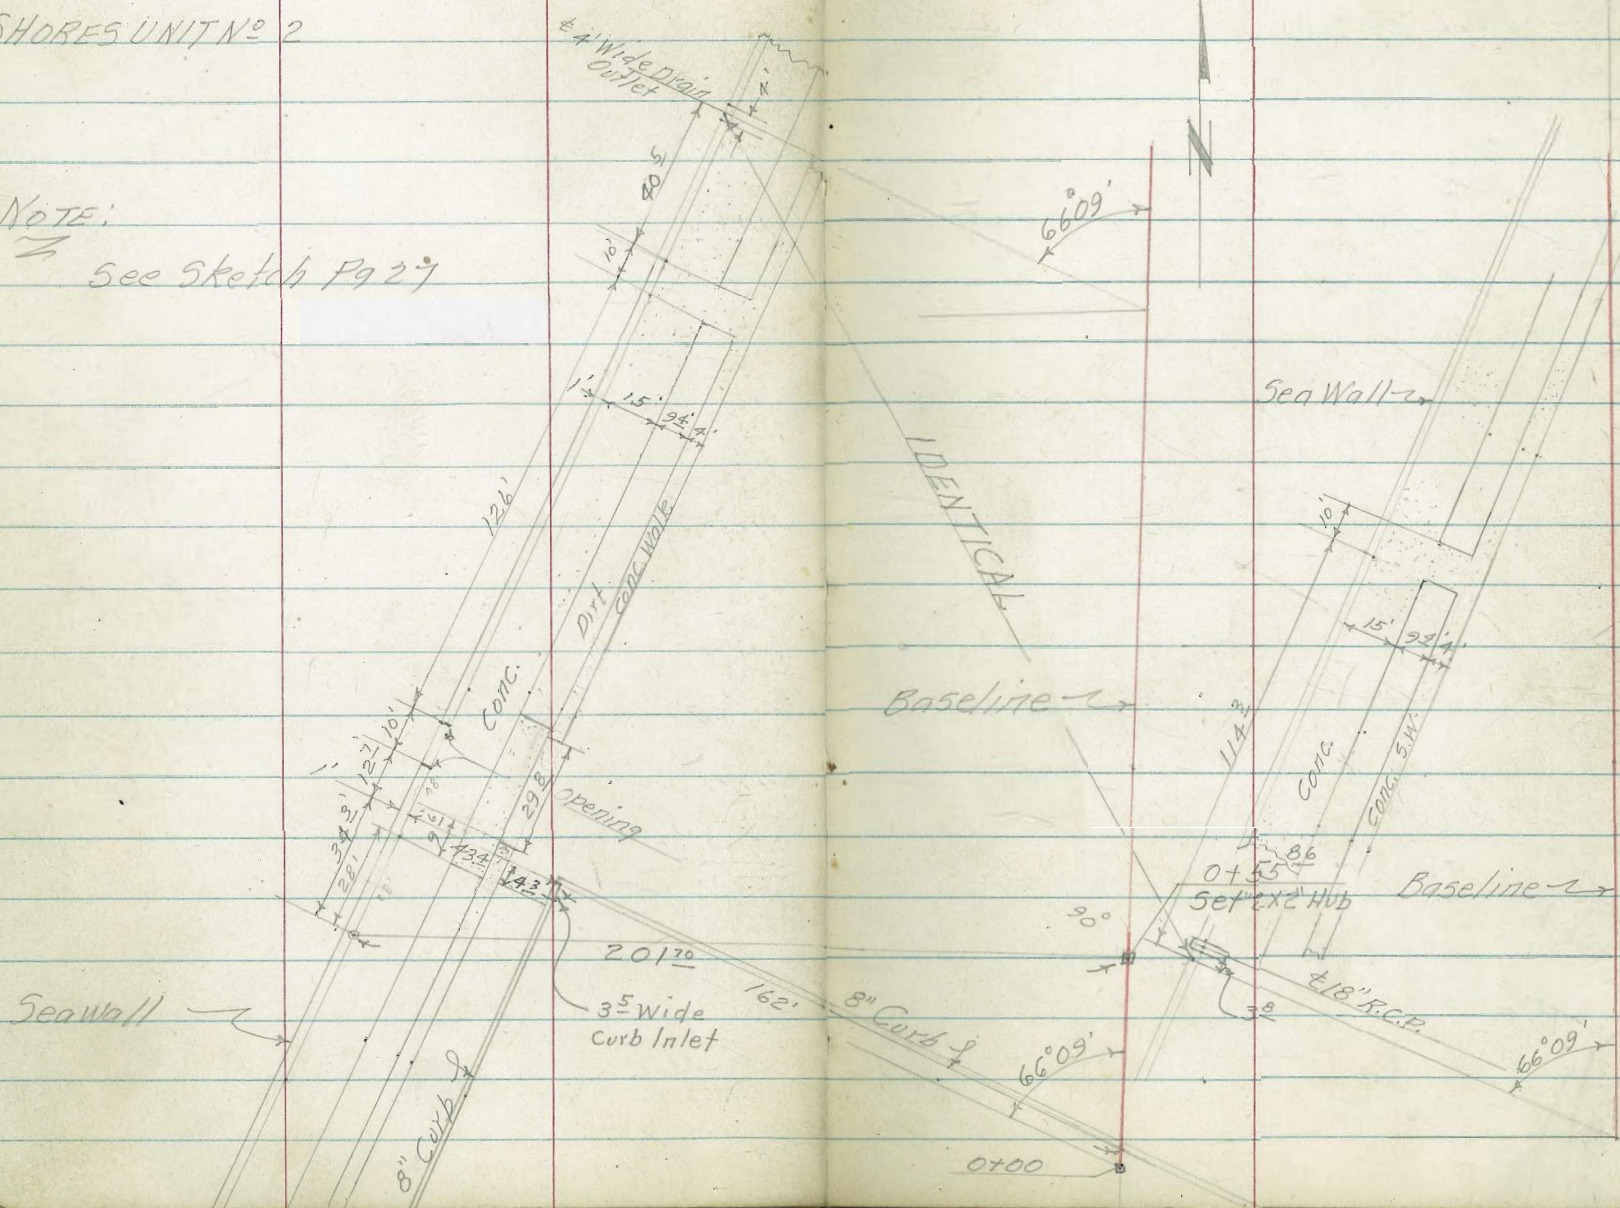 SHORES UNIT Nº 2
NOTE:
See Sketch Pg 27
℄ 4' Wide Drain
Outlet
4'
40 5
10'
1'
15'
94
4'
126'
Dirt
Conc. Walk
Conc.
10'
12 7
1'
34 3'
28'
29 8
Opening
9
43 4
43
201 70
3 5 Wide
Curb Inlet
162'
8" Curb
Seawall
8" Curb
N
66°09'
IDENTICAL
Baseline
Sea Wall
10'
15'
94
4'
114 3
Conc.
Conc. S.W.
0+55 86
Set 2"x2" Hub
Baseline
90°
3 8
℄ 18" R.C.P.
66°09'
66°09'
0+00